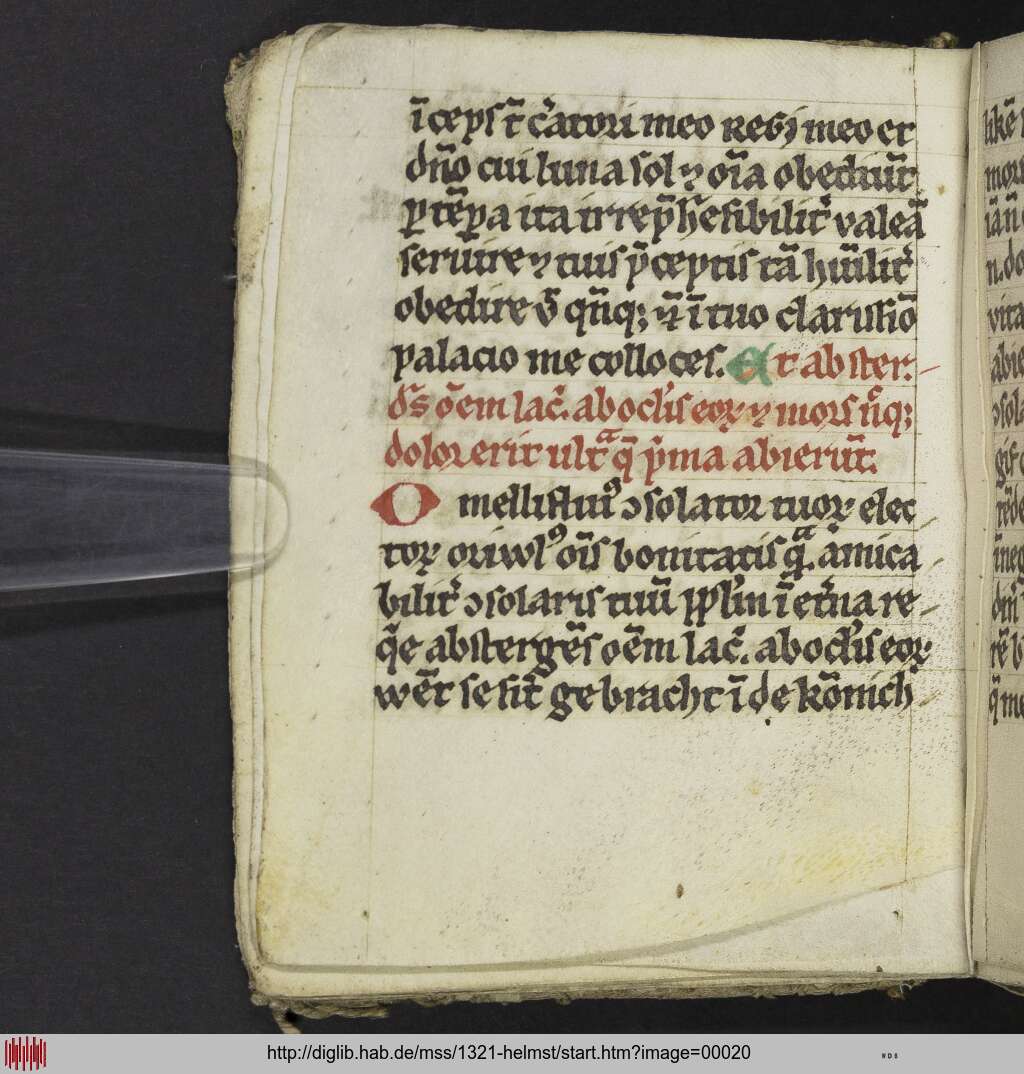 īceps t̄ c̓atori meo regi meo et
dn̄o cui luna sol ⁊ oīa obediūt
ꝑ tēpa ita irrep̄hēsibilit̓ valeā
seruire ⁊ tuis p̄ceptis tā hūilit̓
obedire ꝙ qn̄q; ī tuo clarissīo
palacio me colloces. Et abster.
ds̄ oēm lac̓. ab ocl̓is eoꝝ ⁊ mors n̄q;
dolor erit ultᵃ q̄ p̓ma abierūt.
O mellifluꝰ ↄsolator tuoꝝ elec
toꝝ oīs bonitatis qᵃ. amica
bilit̓ ↄsolaris tuū pplm̄ ī et̓na re
q̄e abstergēs oēm lac̓. ab ocl̓is eoꝝ
wēt se sīt gebracht ī de kōnich
http://diglib.hab.de/mss/1321-helmst/start.htm?image=00020